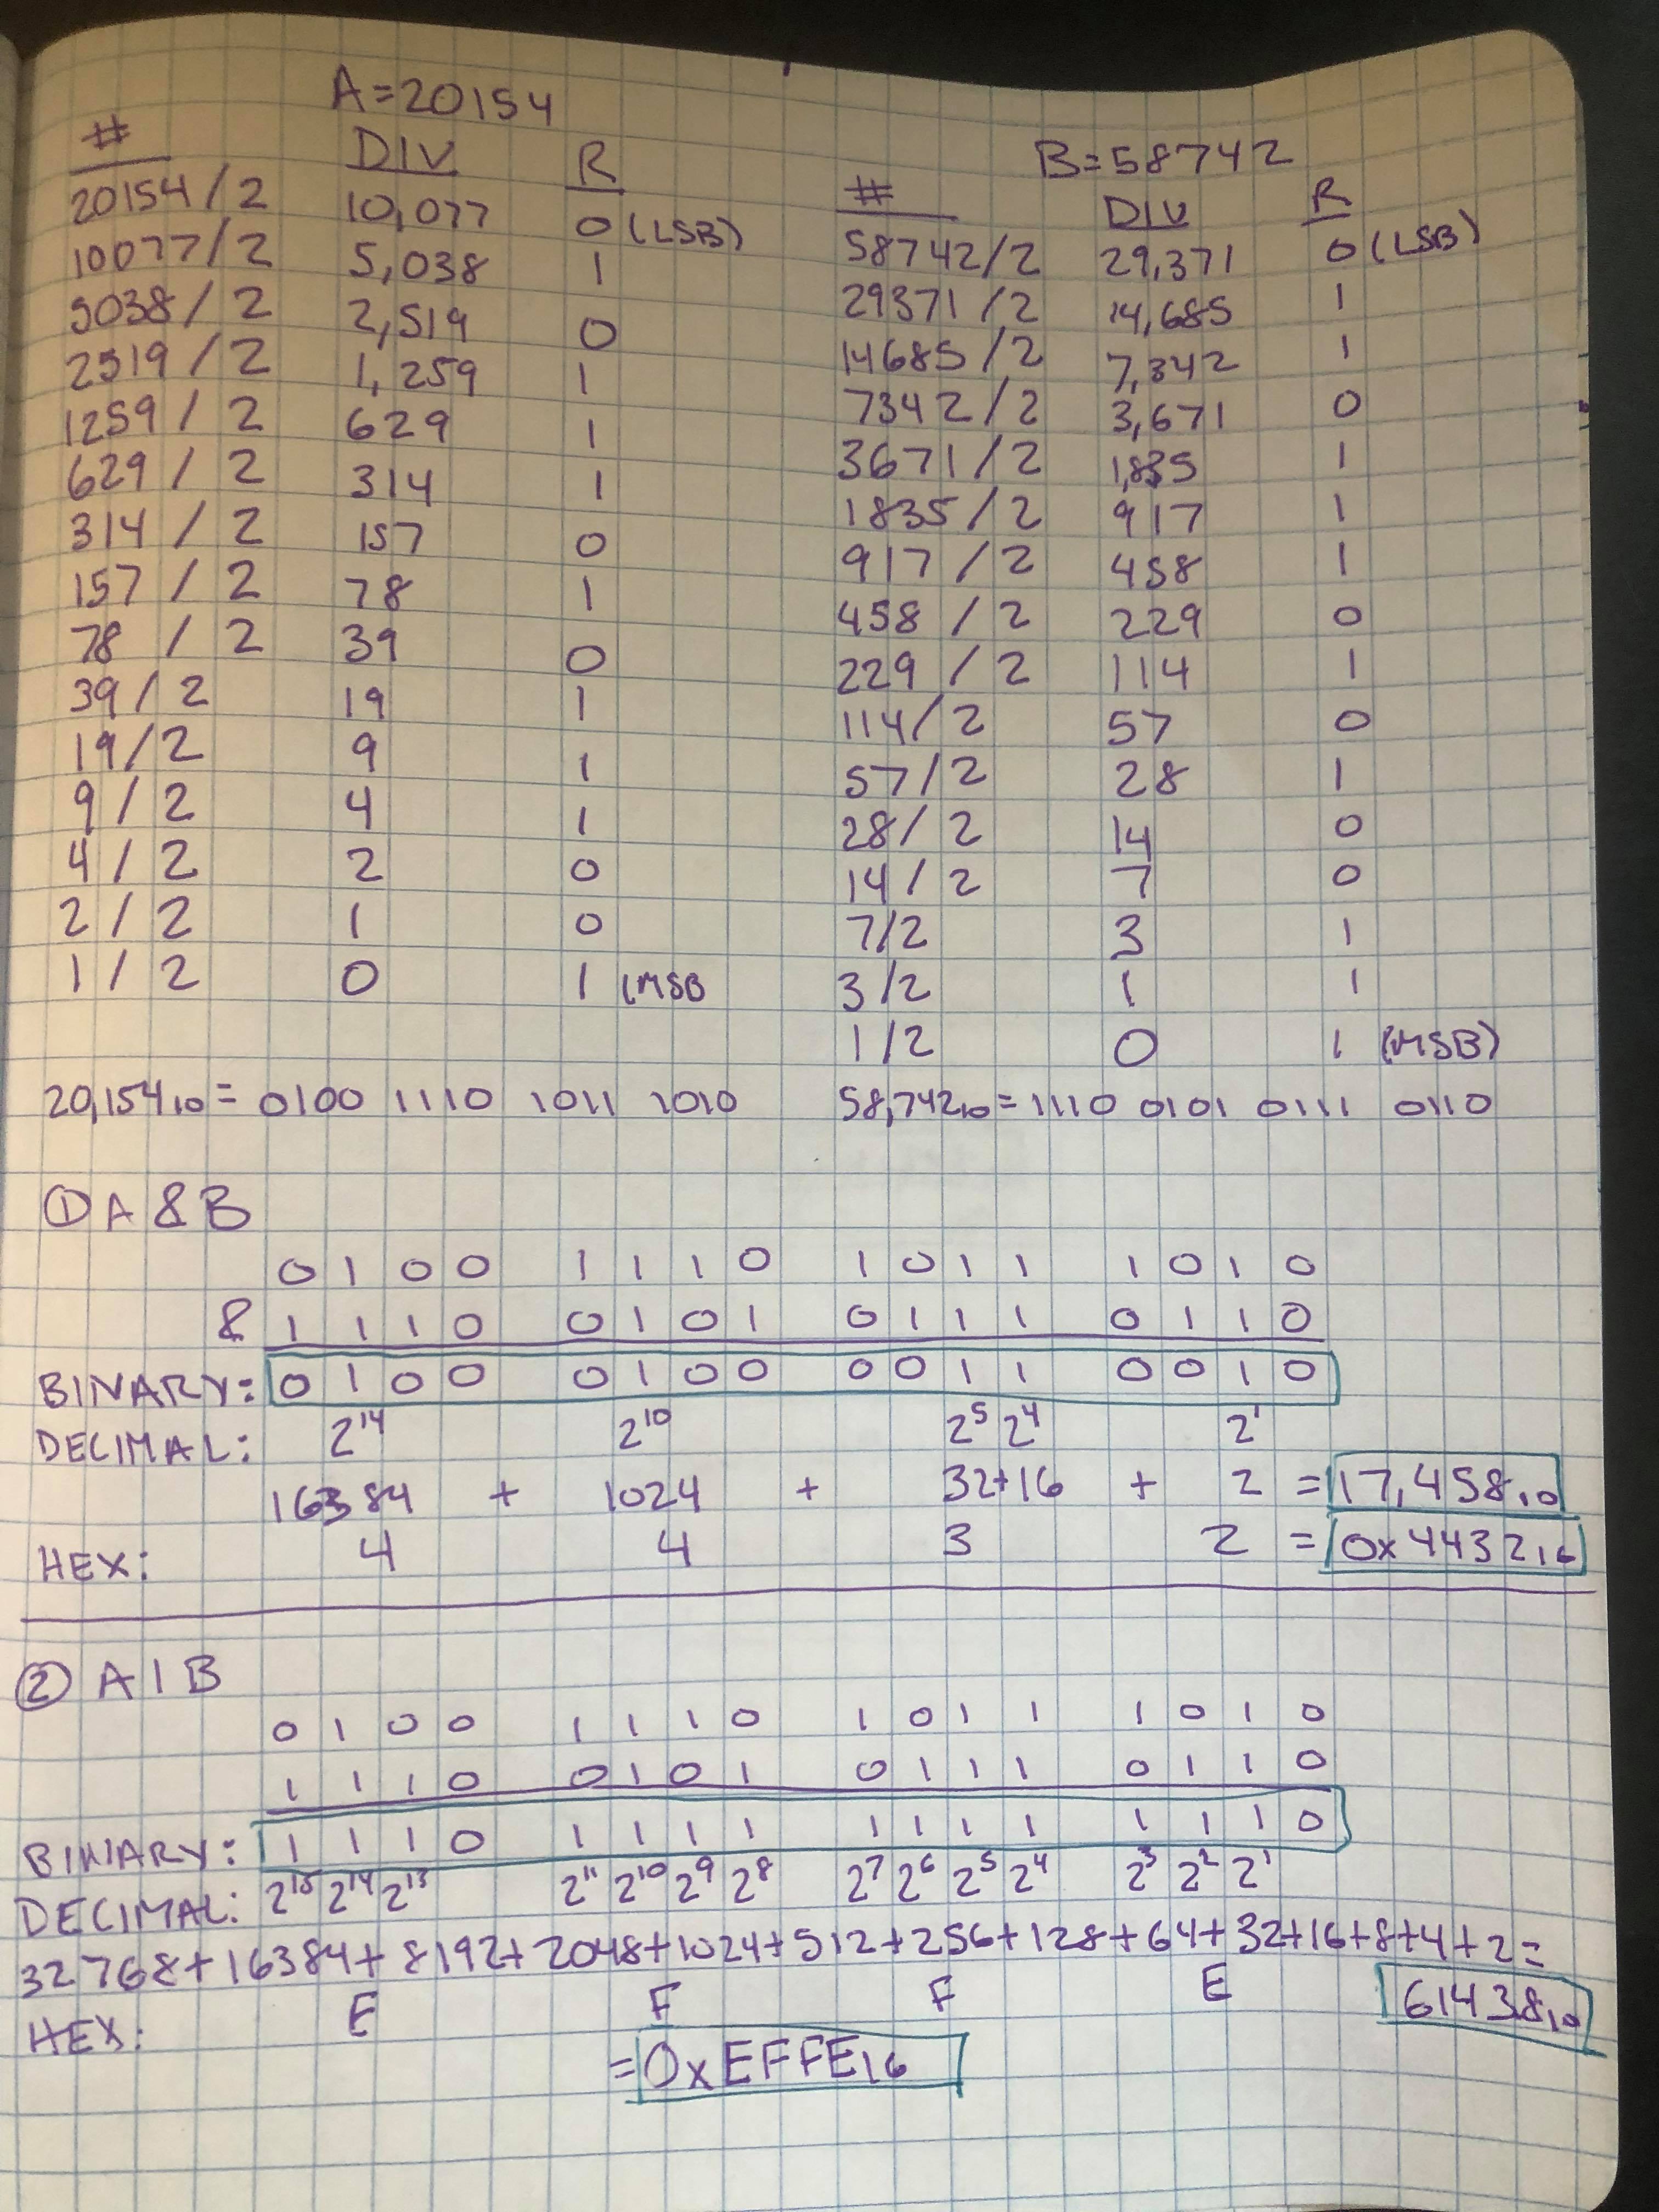 A=20154
# DIV R
20154/2 10,077 0 (LSB)
10077/2 5,038 1
5038/2 2,519 0
2519/2 1,259 1
1259/2 629 1
629/2 314 1
314/2 157 0
157/2 78 1
78/2 39 0
39/2 19 1
19/2 9 1
9/2 4 1
4/2 2 0
2/2 1 0
1/2 0 1 (MSB
20,154₁₀ = 0100 1110 1011 1010
B=58742
# DIV R
58742/2 29,371 0 (LSB)
29371/2 14,685 1
14685/2 7,342 1
7342/2 3,671 0
3671/2 1,835 1
1835/2 917 1
917/2 458 1
458/2 229 0
229/2 114 1
114/2 57 0
57/2 28 1
28/2 14 0
14/2 7 0
7/2 3 1
3/2 1 1
1/2 0 1 (MSB)
58,742₁₀ = 1110 0101 0111 0110
① A & B
0100 1110 1011 1010
& 1110 0101 0111 0110
BINARY: 0100 0100 0011 0010
DECIMAL: 2¹⁴ 2¹⁰ 2⁵ 2⁴ 2¹
16384 + 1024 + 32+16 + 2 = 17,458₁₀
HEX: 4 4 3 2 = 0x4432₁₆
② A | B
0100 1110 1011 1010
1110 0101 0111 0110
BINARY: 1110 1111 1111 1110
DECIMAL: 2¹⁵ 2¹⁴ 2¹³ 2¹¹ 2¹⁰ 2⁹ 2⁸ 2⁷ 2⁶ 2⁵ 2⁴ 2³ 2² 2¹
32768+16384+8192+2048+1024+512+256+128+64+32+16+8+4+2=
61438₁₀
HEX: E F F E
=0xEFFE₁₆